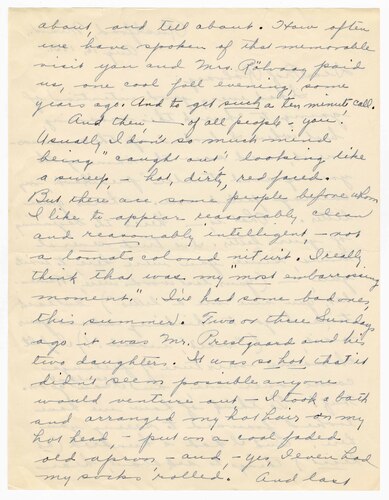 about, and tell about. How often
we have spoken of that memorable
visit you and Mrs. Rölvaag paid
us, one cool fall evening, some
years ago. And to get such a ten minute call.
And then — of all people - you!
Usually I don't so much mind
being "caught out" looking like
a sweep, - hot, dirty, red faced.
But there are some people before whom
I like to appear reasonably clean
and reasonably intelligent, - not
a tomato colored nit wit. I really
think that was my "most embarrassing
moment." I've had some bad ones,
this summer. Two or three Sundays
ago it was Mr. Prestgaard and his
two daughters. It was so hot that it
didn't seem possible anyone
would venture out - I took a bath
and arranged my hot hair on my
hot head, - put on a cool faded
old apron - and, - yes, I even had
my socks rolled. And last